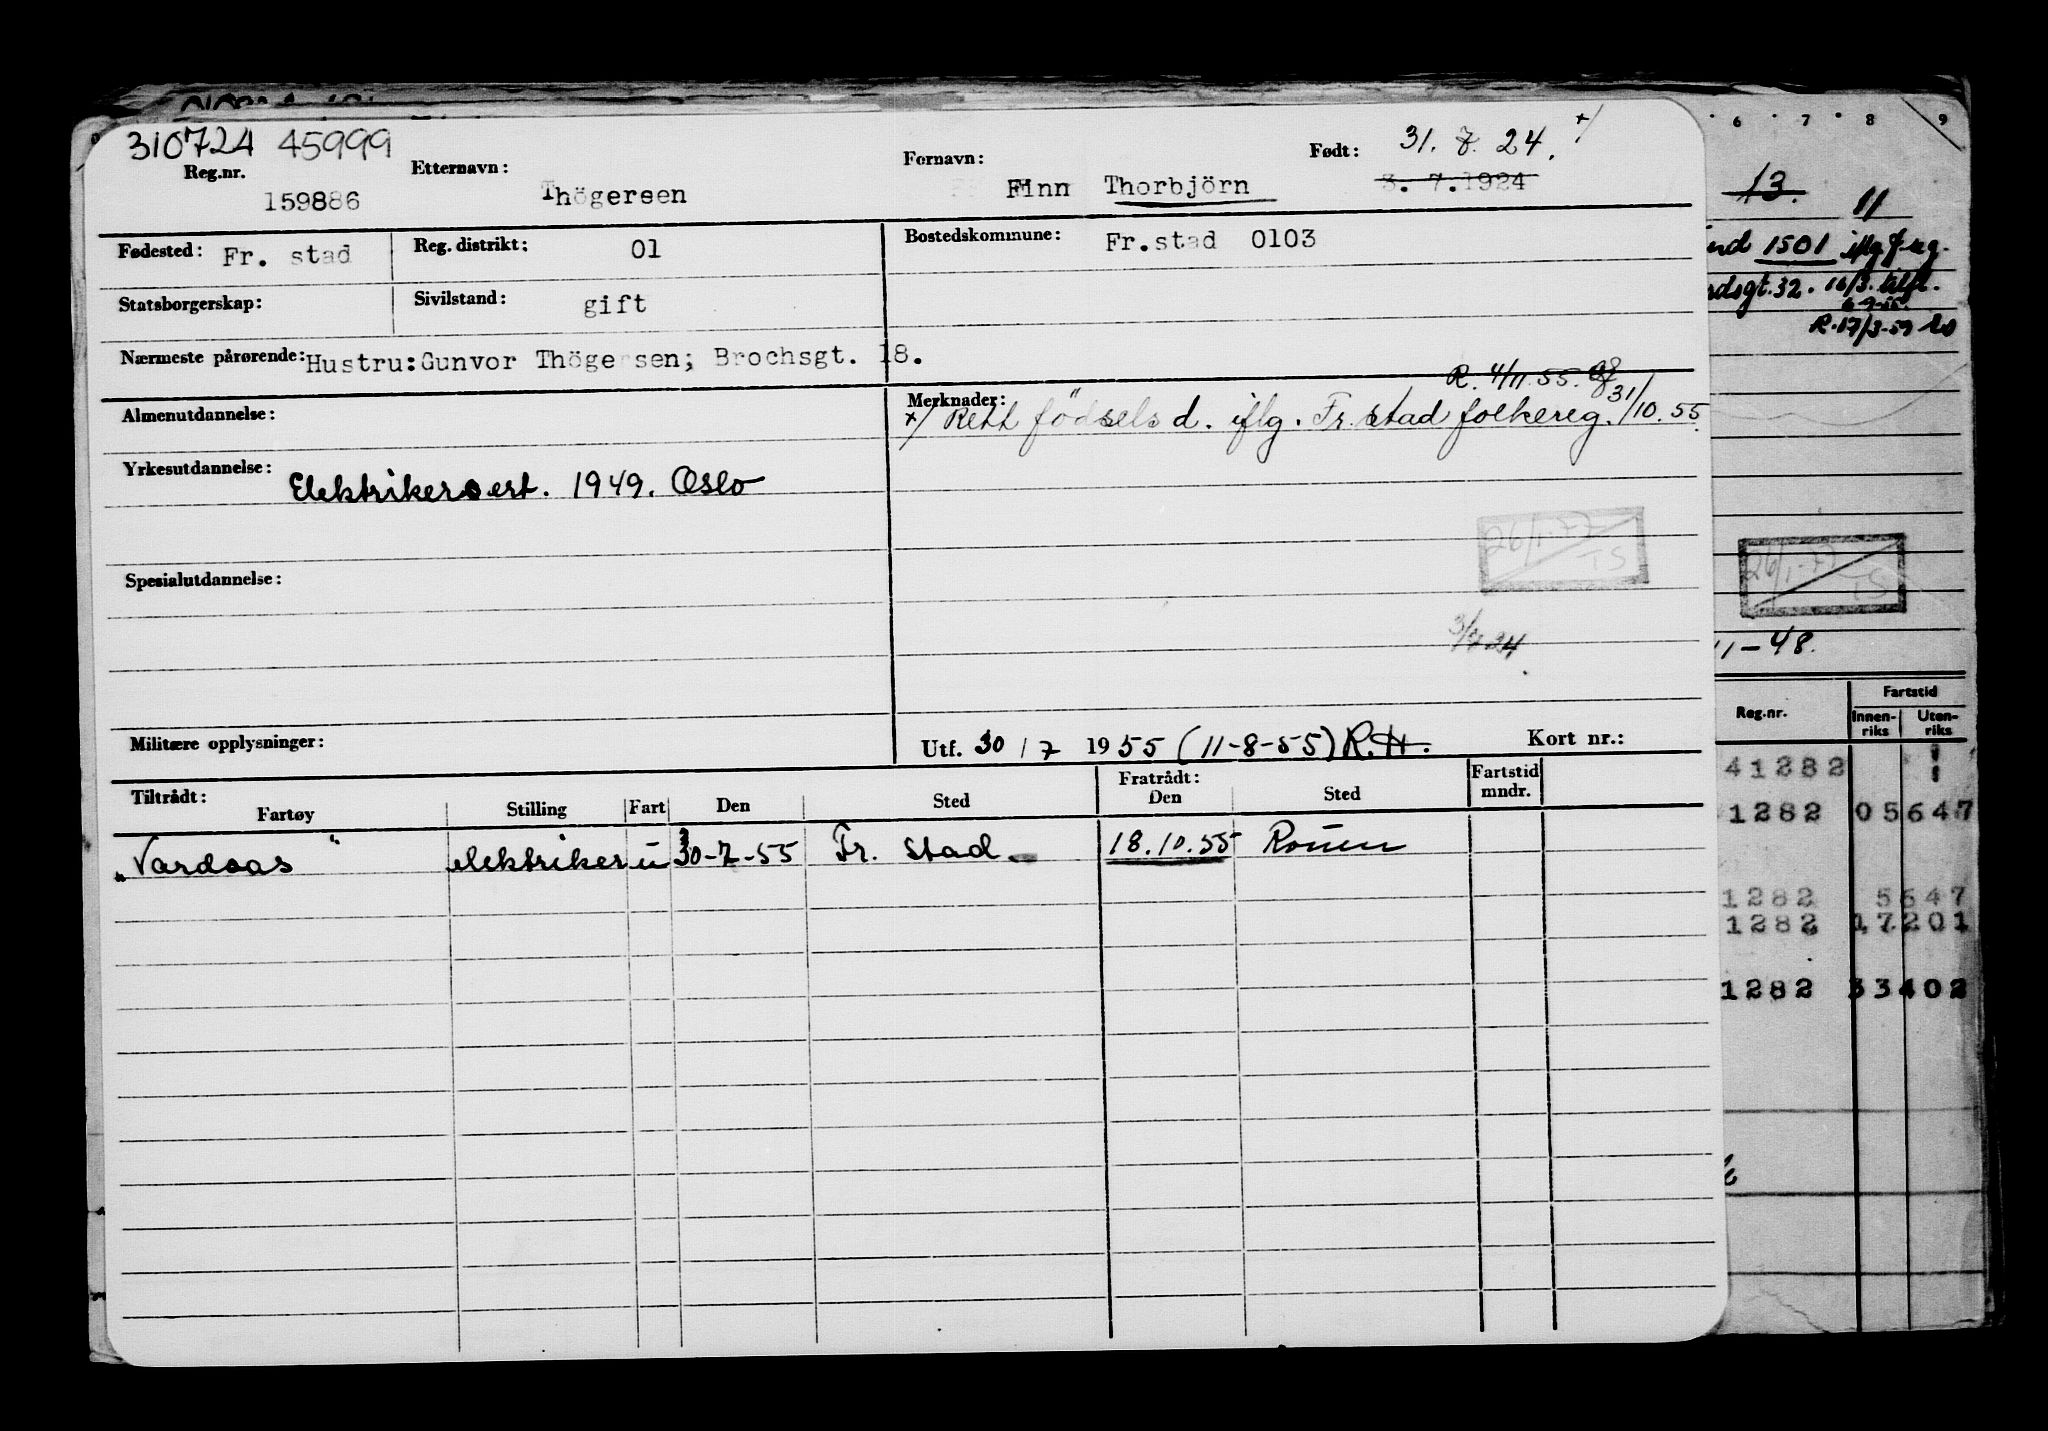 310724 45999
Reg.nr. 159886
Etternavn: Thögersen
Fornavn: Finn Thorbjörn
Født: 31. 7. 24. +/
3. 7.1924
Fødested: Fr. stad
Reg. distrikt: 01
Bostedskommune: Fr.stad 0103
Statsborgerskap:
Sivilstand: gift
Nærmeste pårørende: Hustru: Gunvor Thögersen; Brochsgt. 18.
R. 4/11.55.
Almenutdannelse:
Merknader:
+/ Rett födselsd. iflg. Fr.stad folkereg. 31/10.55.
Yrkesutdannelse: Elektrikersert. 1949. Oslo
26/1-77
TS
Spesialutdannelse:
3/7 24
Militære opplysninger:
Utf. 30/7 1955 (11-8-55) R.H.
Kort nr.:
Tiltrådt:
Fratrådt:
Fartøy Stilling Fart Den Sted Den Sted Fartstid mndr.
"Vardaas" elektriker u 30-7-55 Fr. stad 18.10.55 Rouen
6 7 8 9
13.
11
1501 iflg f.reg.
dsgt.32. 16/3. tilfl.
6-9-55.
R.17/3-59
26/1-77
TS
11-48.
Reg.nr.
Fartstid
Innenriks Utenriks
41282
1282 05647
1282 5647
1282 17201
1282 33402